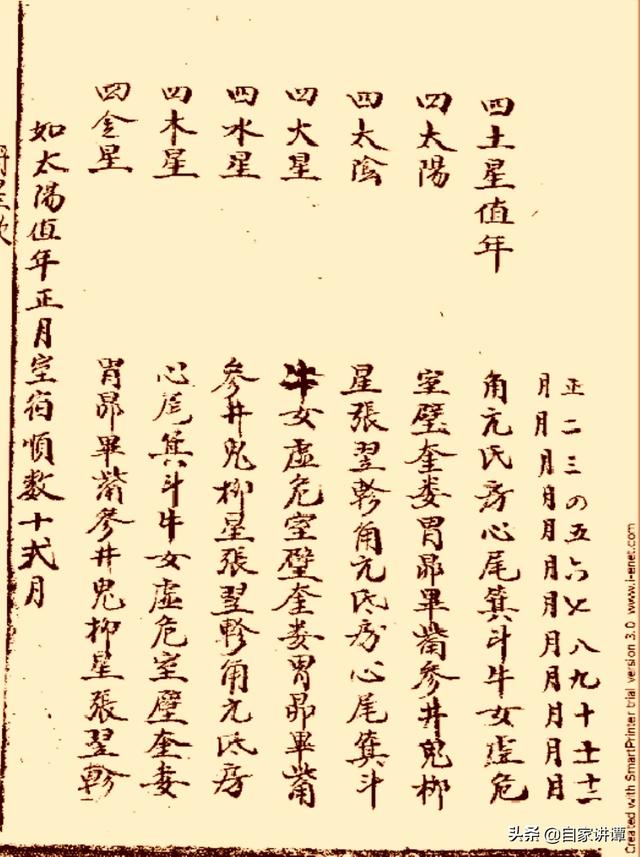 正二三の五六七八九十十一十二
月月月月月月月月月月月月
四土星值年 角亢氐房心尾箕斗牛女虛危
四太陽 室璧奎娄胃昴畢觜參井鬼柳
四太陰 星張翌軫角亢氐房心尾箕斗
四火星 牛女虛危室璧奎娄胃昴畢觜
四水星 參井鬼柳星張翌軫角亢氐房
四木星 心尾箕斗牛女虛危室璧奎娄
四金星 胃昴畢觜參井鬼柳星張翌軫
如太陽值年正月室宿順數十弍月
Created with SmartPrinter trial version 3.0 www.i-enet.com
头条 @自家讲谭